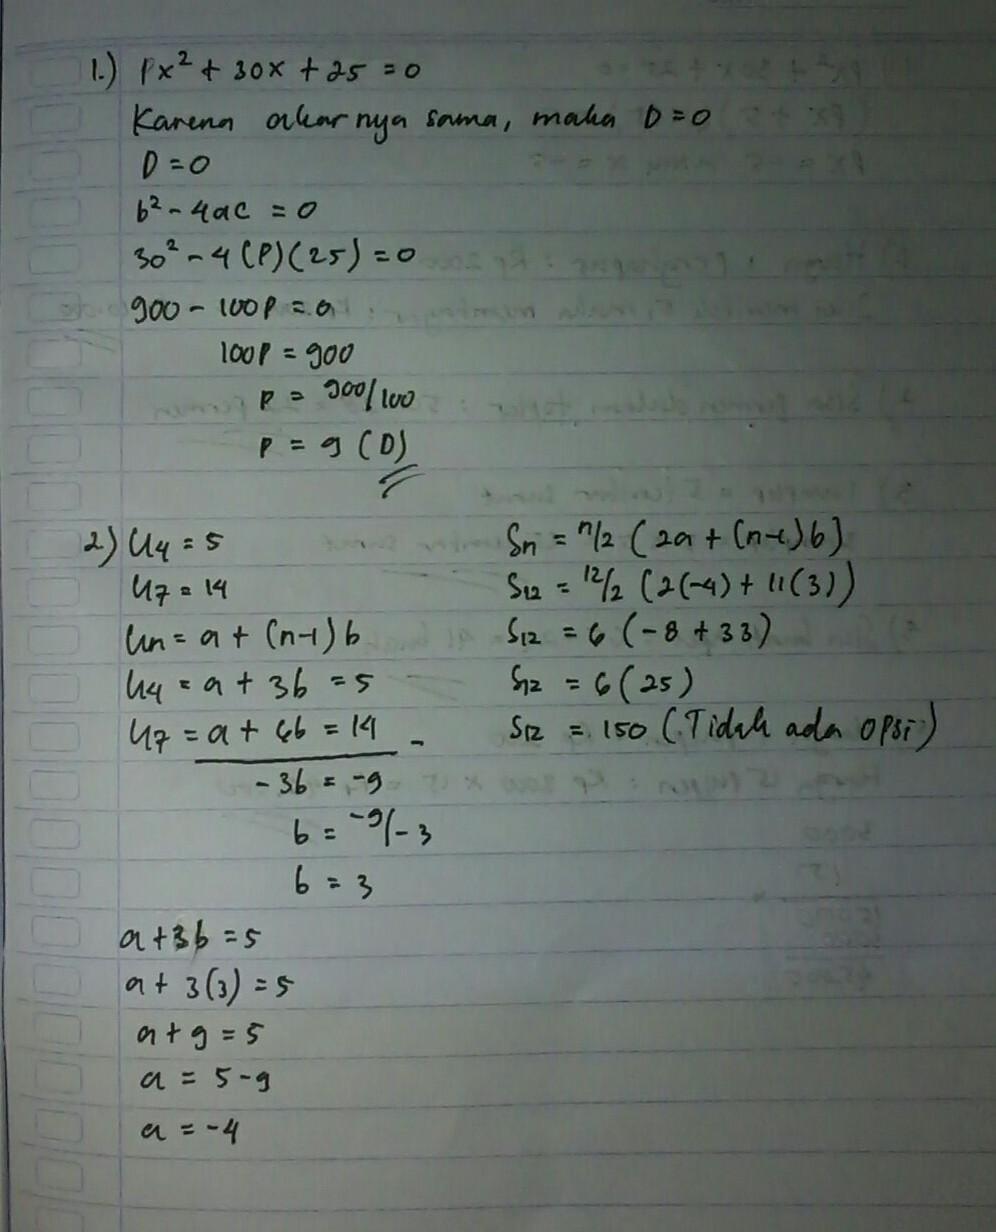 1.) Px² + 30x + 25 = 0
Karena akarnya sama, maka D = 0
D = 0
b² - 4ac = 0
30² - 4(P)(25) = 0
900 - 100P = 0
100P = 900
P = 900/100
P = 9 (D)
2) U4 = 5
U7 = 14
Un = a + (n-1)b
U4 = a + 3b = 5
U7 = a + 6b = 14 -
-3b = -9
b = -9/-3
b = 3
a + 3b = 5
a + 3(3) = 5
a + 9 = 5
a = 5 - 9
a = -4
Sn = n/2 (2a + (n-1)b)
S12 = 12/2 (2(-4) + 11(3))
S12 = 6 (-8 + 33)
S12 = 6 (25)
S12 = 150 (Tidak ada opsi)